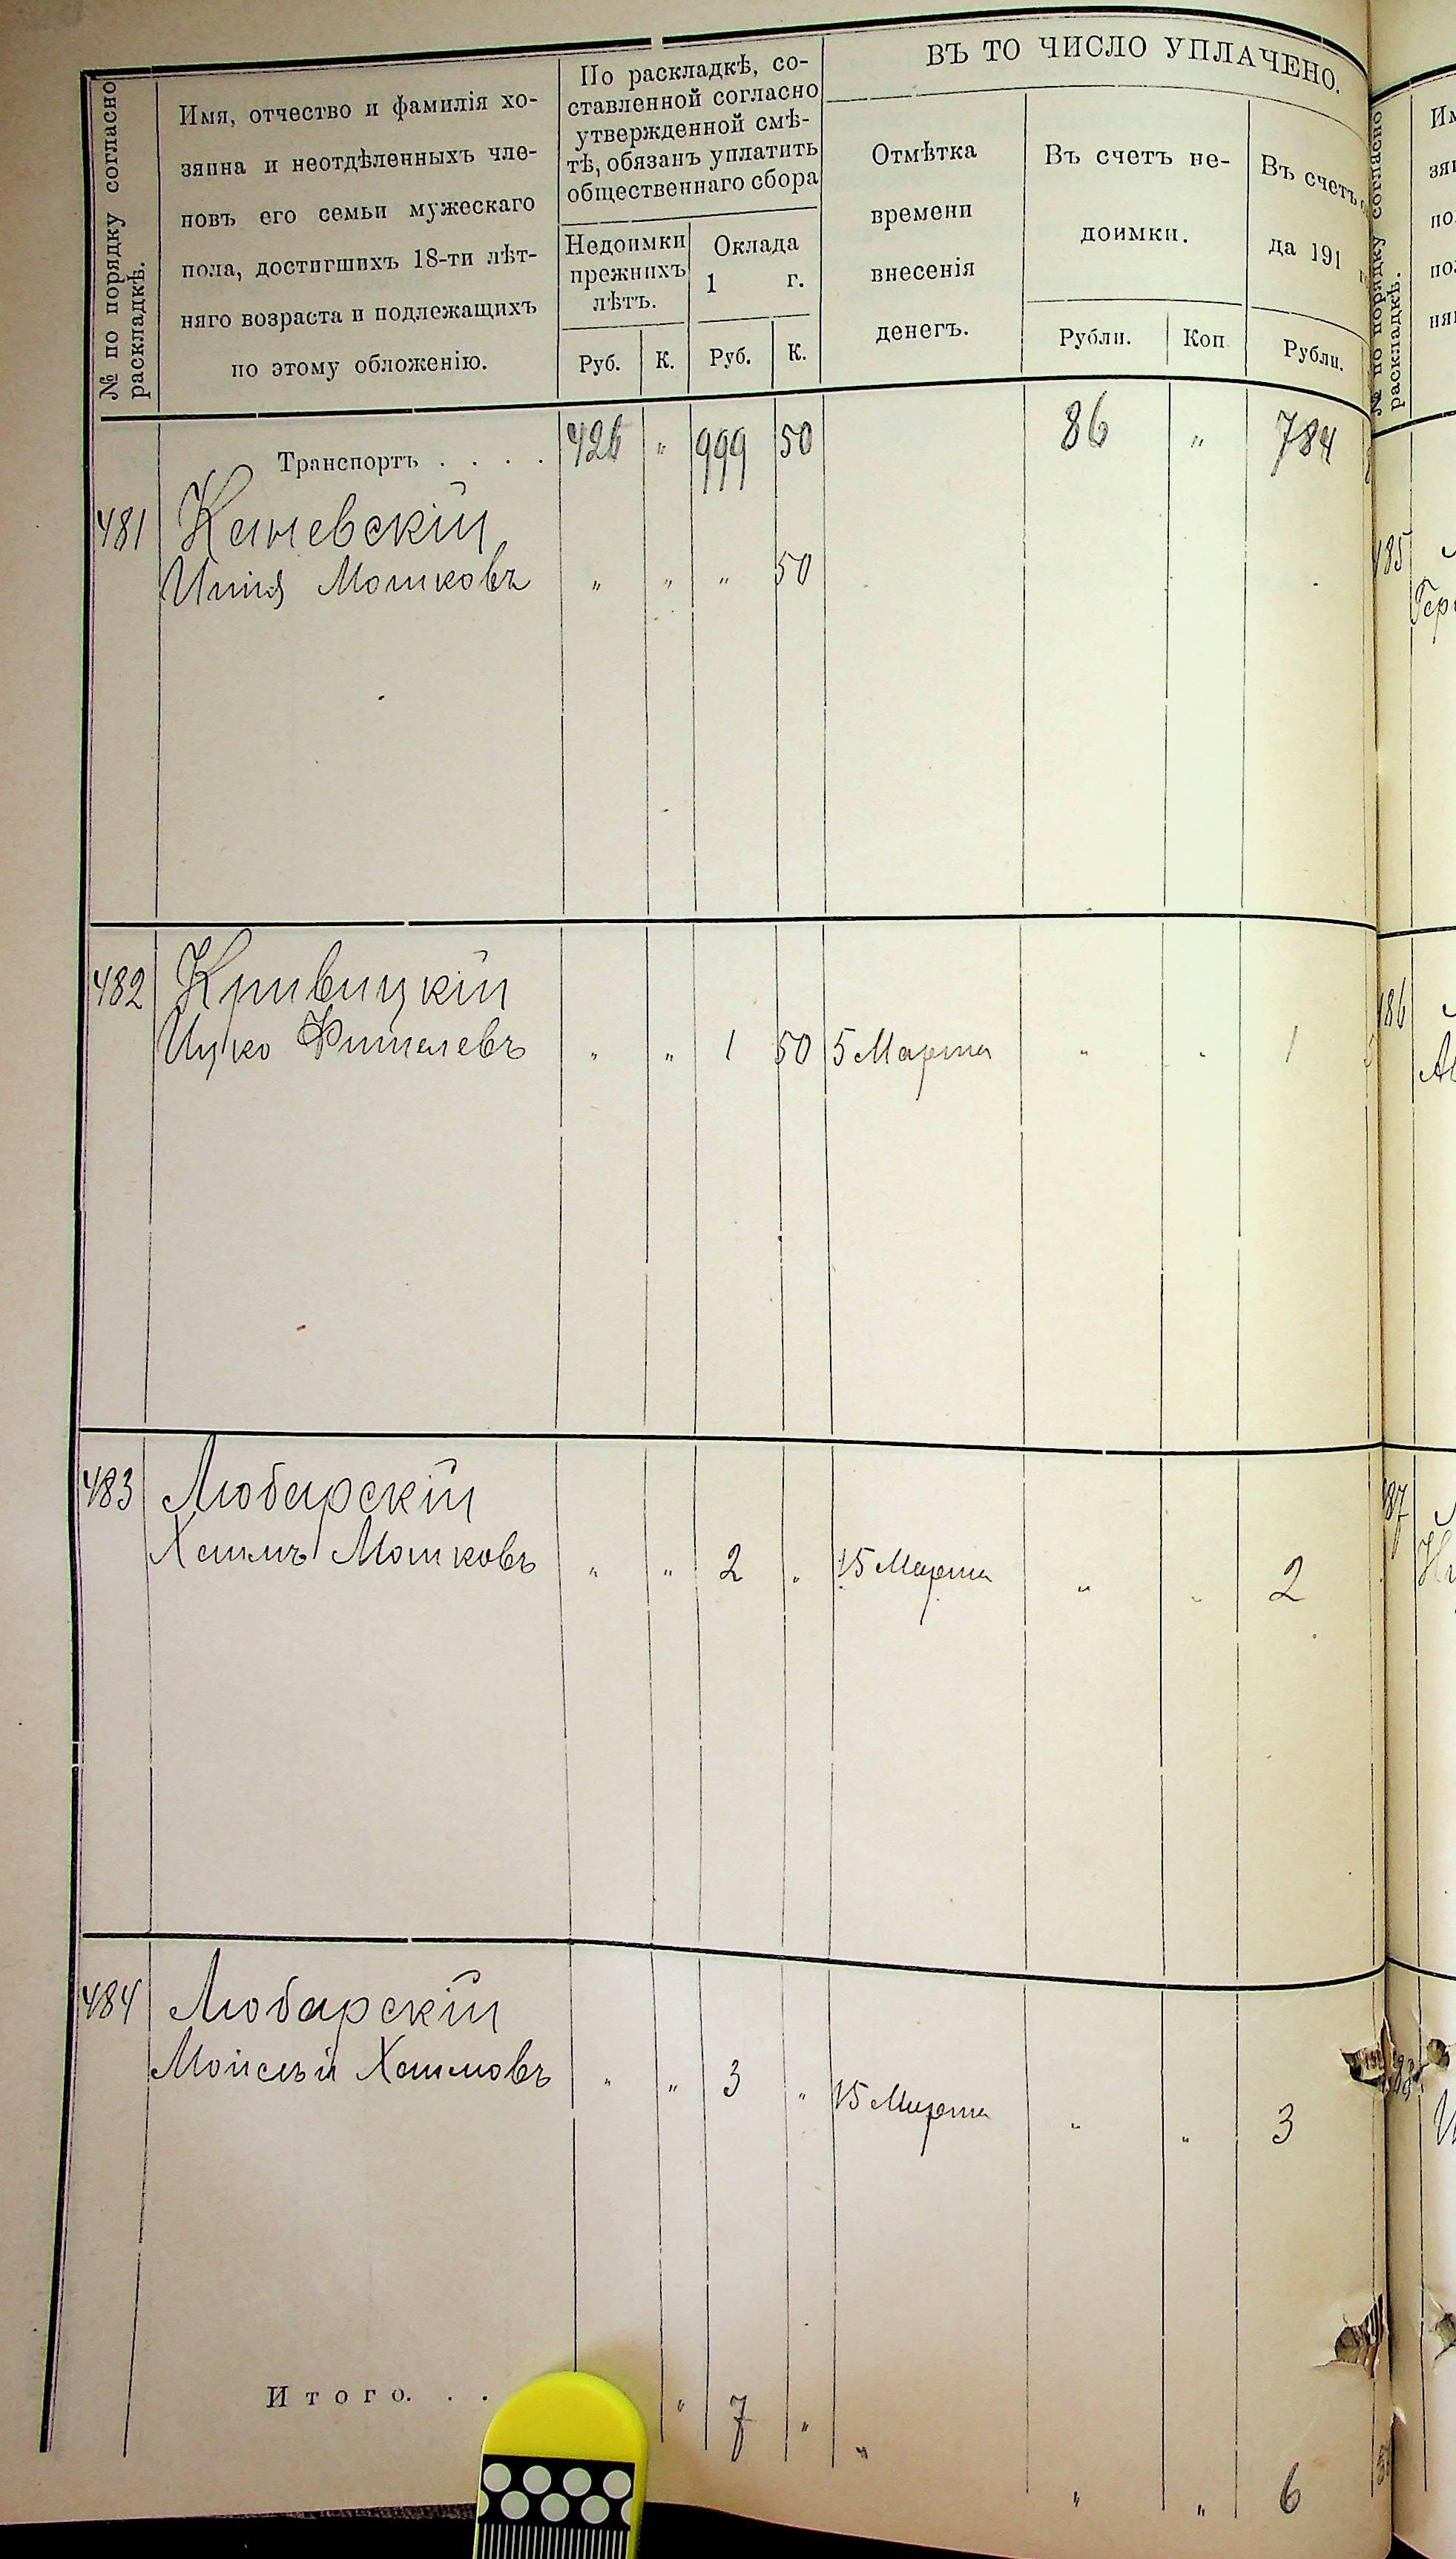 № по порядку согласно
раскладкѣ.
Имя, отчество и фамилія хо-
зяина и неотдѣленныхъ чле-
новъ его семьи мужескаго
пола, достигшихъ 18-ти лѣт-
няго возраста и подлежащихъ
по этому обложенію.
По раскладкѣ, со-
ставленной согласно
утвержденной смѣ-
тѣ, обязанъ уплатить
общественнаго сбора
Недоимки
прежнихъ
лѣтъ.
Руб. К.
Оклада
1 г.
Руб. К.
ВЪ ТО ЧИСЛО УПЛАЧЕНО.
Отмѣтка
времени
внесенія
денегъ.
Въ счетъ не-
доимки.
Рубли. Коп
Въ счетъ
да 191
Рубли.
Транспортъ . . . . 426 " 999 50 86 " 784
481 Каневскій
Мошковъ " " " 50
482 Кривицкій
Ицко Фишелевъ " " 1 50 5 Марта " " 1
483 Любарскій
Хаимъ Мошковъ " " 2 " 15 Марта " " 2
484 Любарскій
Моисѣй Хаимовъ " " 3 " 15 Марта " " 3
Итого. . . " 7 " " " " 6
№ по порядку согласно
раскладкѣ.
185
186
187